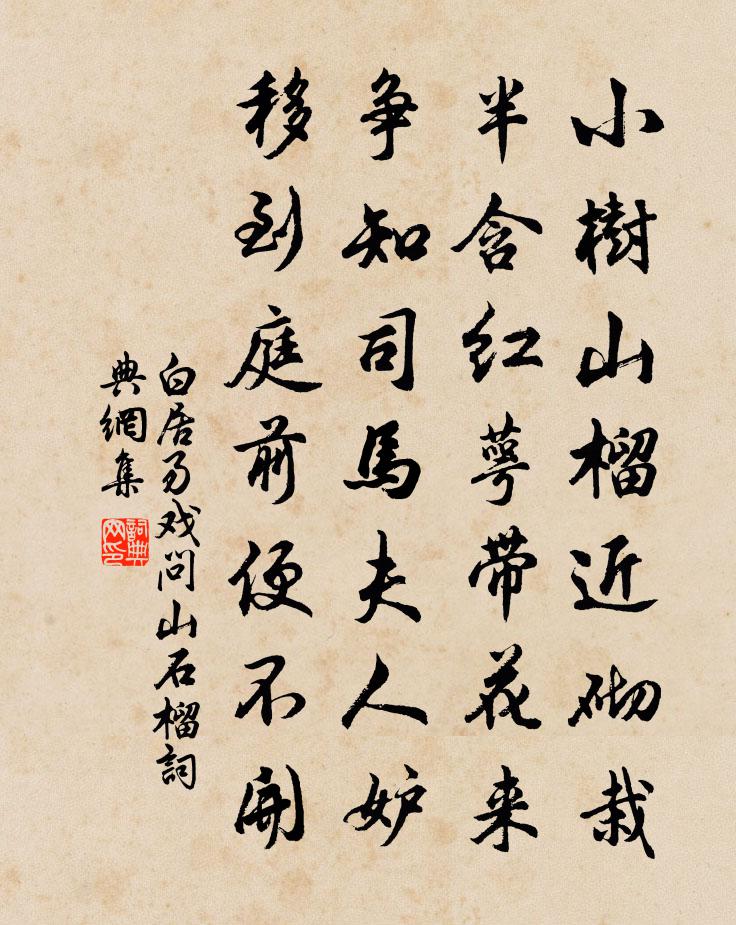 小樹山榴近砌栽
半含紅萼带花来
争知司馬夫人妒
移到庭前便不開
白居易戏问山石榴詞
典網集
詞典
网印